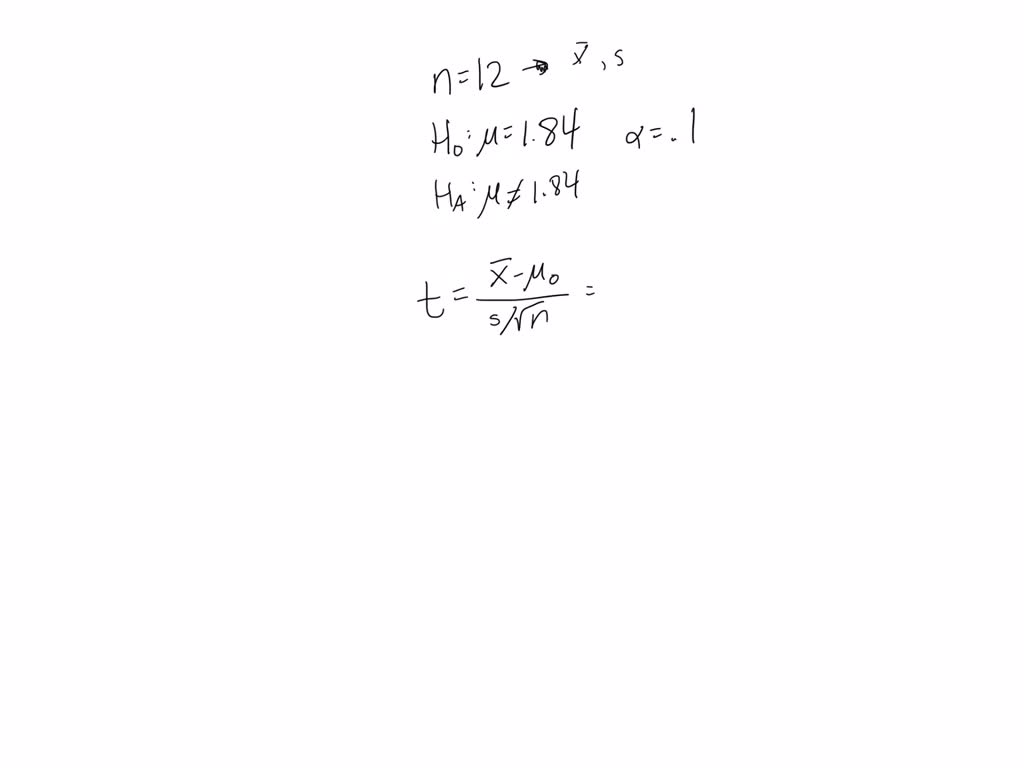 n=12 → x̄, s
H₀: μ=1.84 α=.1
H_A: μ≠1.84
t = (x̄-μ₀)/(s/√n) =